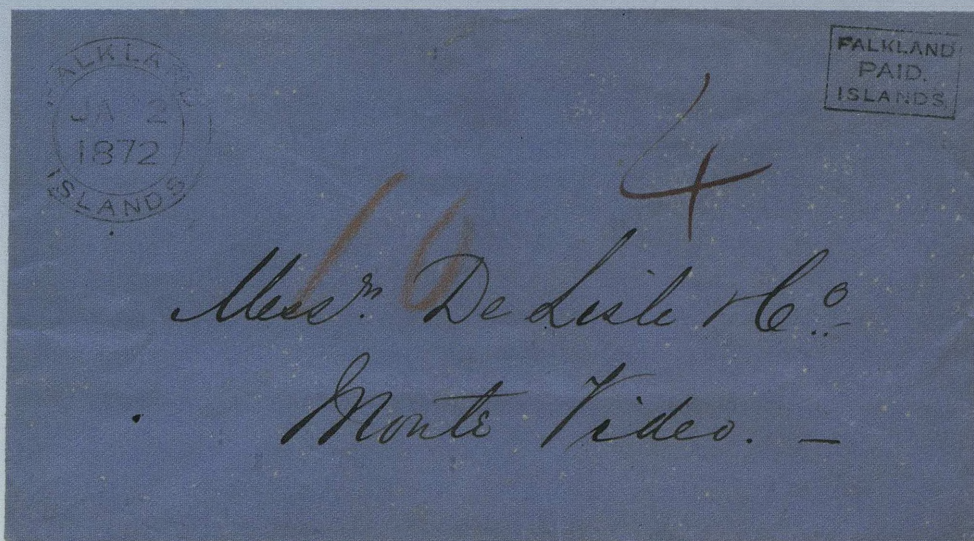 FALKLAND
JA 2
1872
ISLANDS
FALKLAND
PAID.
ISLANDS.
4
10
Messrs. De Lisle & Co.
Monte Video. —